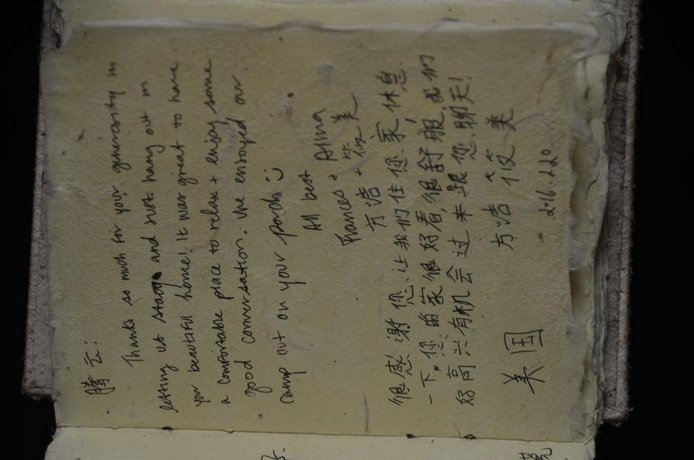 腾云:
Thanks so much for your generosity in
letting us stay and just hang out in
your beautiful home! It was great to have
a comfortable place to relax + enjoy some
good conversation. We enjoyed our
camp out on your porch
All best
Frances +
方浩 + 筱美
很感谢您让我们住您家,休息
一下。您的家很好看很舒服,我们
好高兴有机会过来跟您聊天!
方浩 筱美
美国